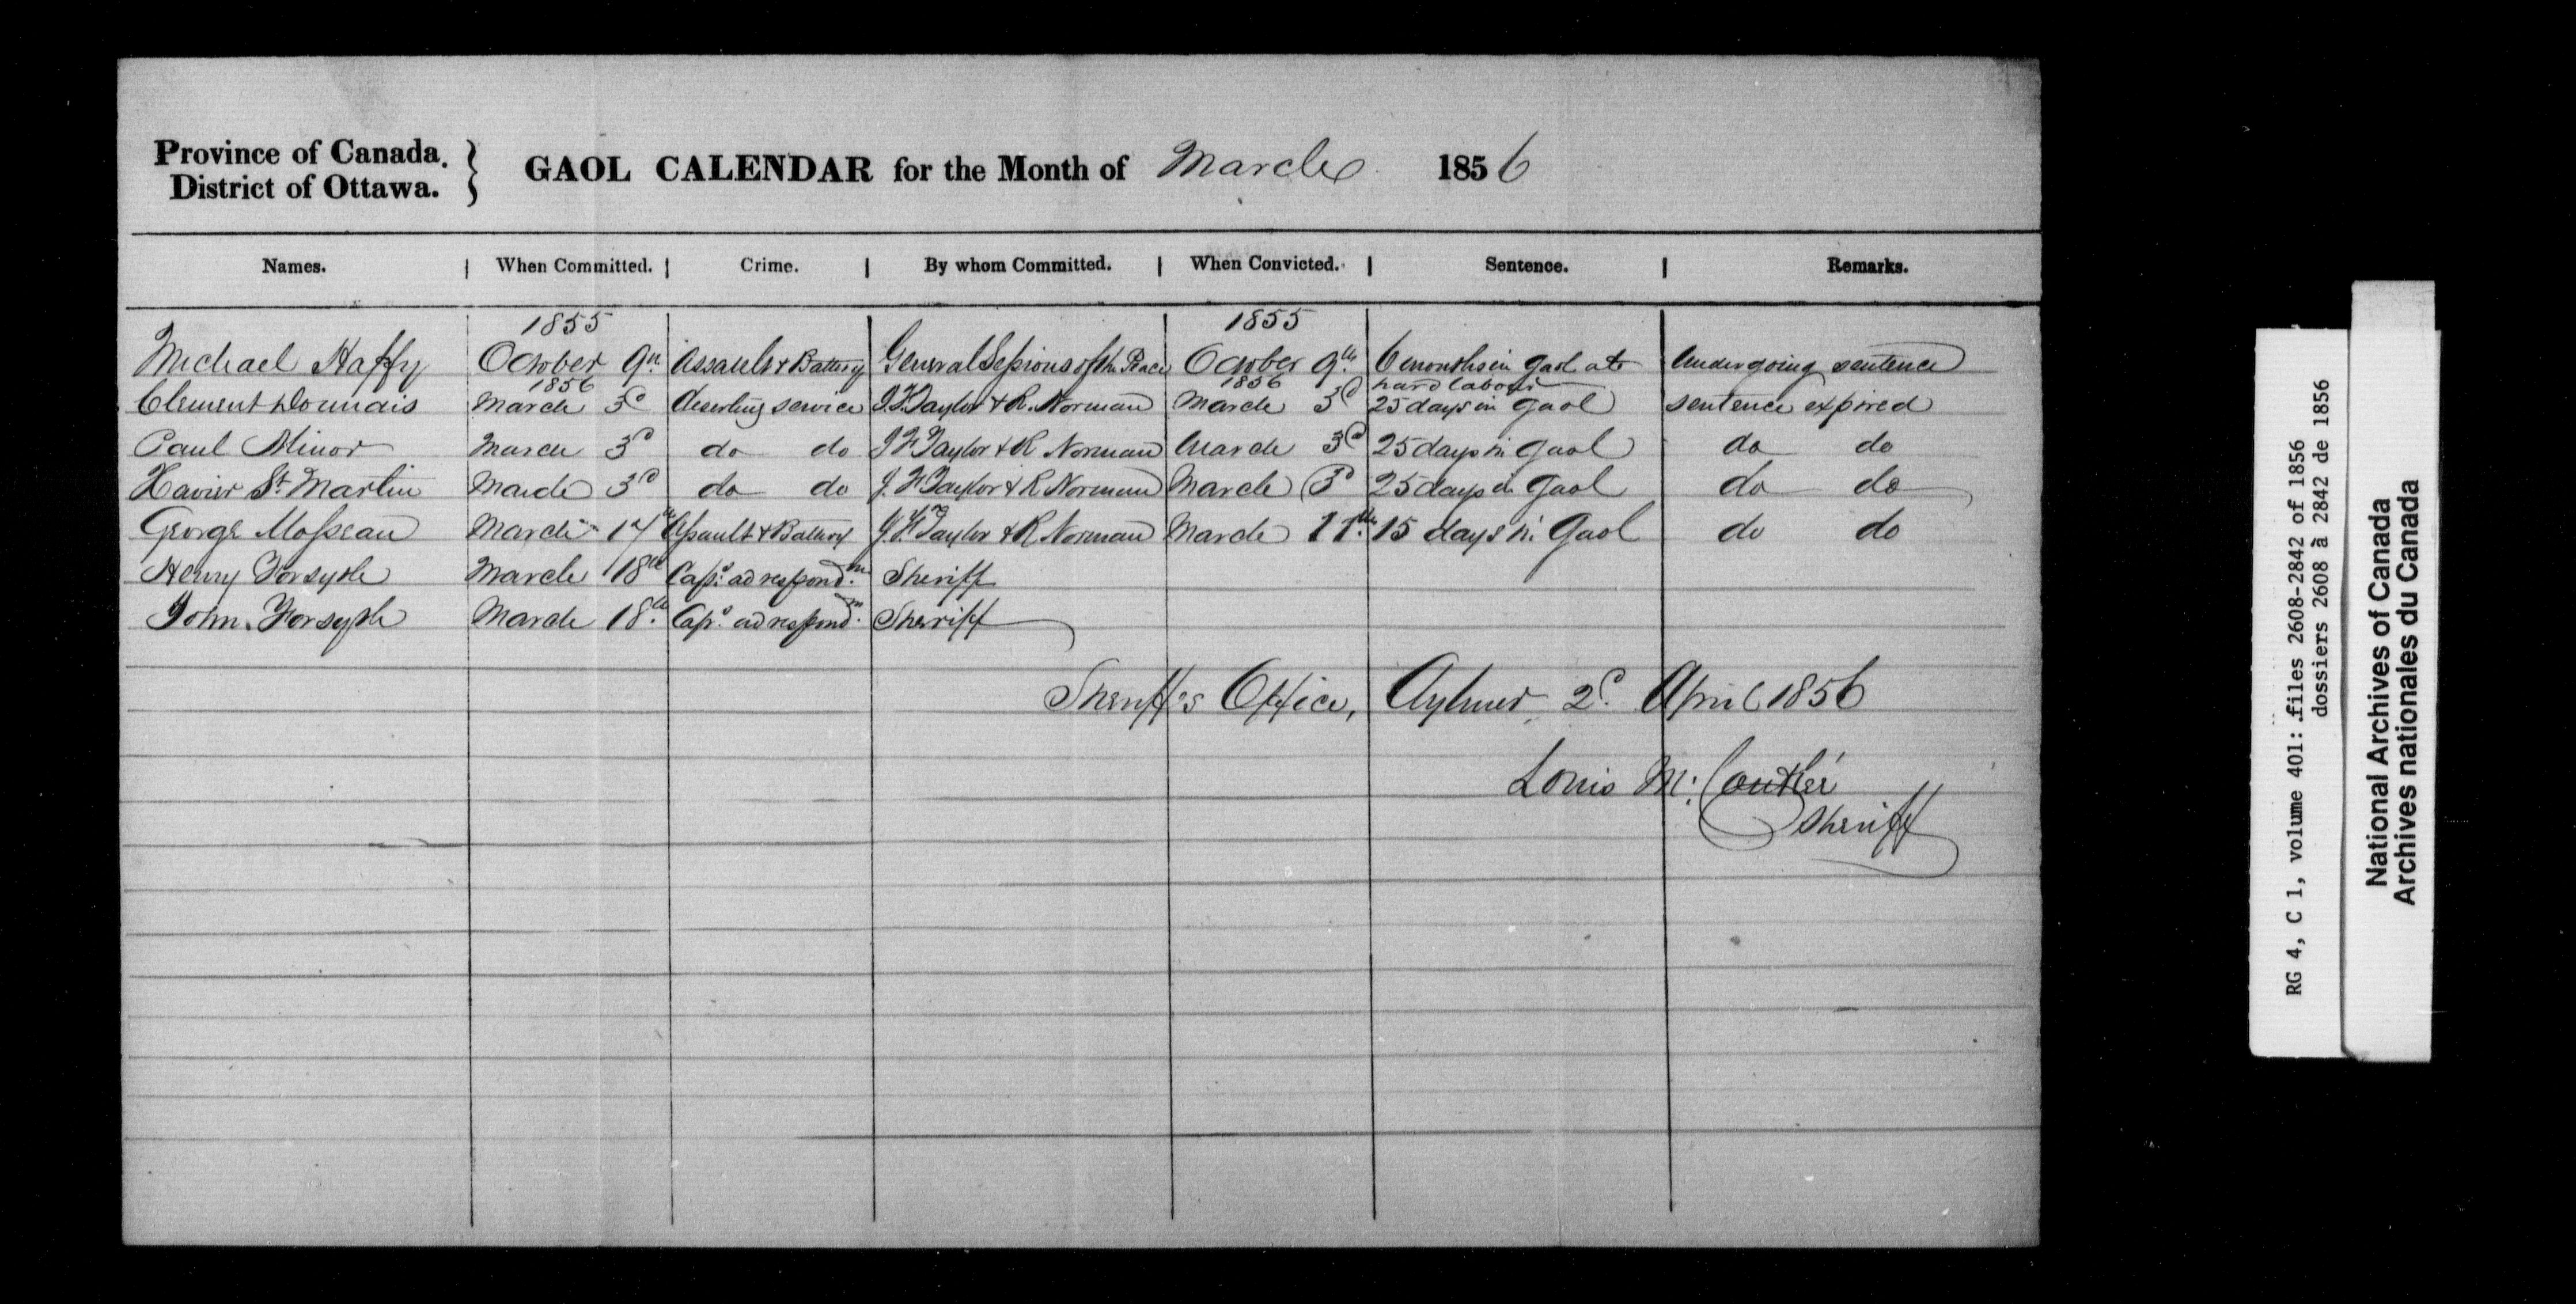 Province of Canada.
District of Ottawa.
GAOL CALENDAR for the Month of March 1856
Names. When Committed. Crime. By whom Committed. When Convicted. Sentence. Remarks.
1855 1855
Michael Haffy October 9th Assault & Battery General Sessions of the Peace October 9th 6 months in gaol at Undergoing sentence
1856 1856 hard labour
Clement March 3d deserting service J.F. Taylor & R. Norman March 3d 25 days in gaol sentence expired
Paul Minor March 3d do do J F Taylor & R Norman March 3d 25 days in gaol do do
Xavier St. Martin March 3d do do J. F Taylor & R Norman March 3d 25 days in Gaol do do
George Mosseau March 17th Assault & Battery J.F. Taylor & R. Norman March 17th 15 days in Gaol do do
Henry Forsyth March 18th Caps. ad respondm Sheriff
John Forsyth March 18th Caps. ad respondm Sheriff
Sheriff's Office, Aylmer 2d April 1856
Louis M. Coutlée
Sheriff
RG 4, C 1, volume 401: files 2608-2842 of 1856
dossiers 2608 à 2842 de 1856
National Archives of Canada
Archives nationales du Canada